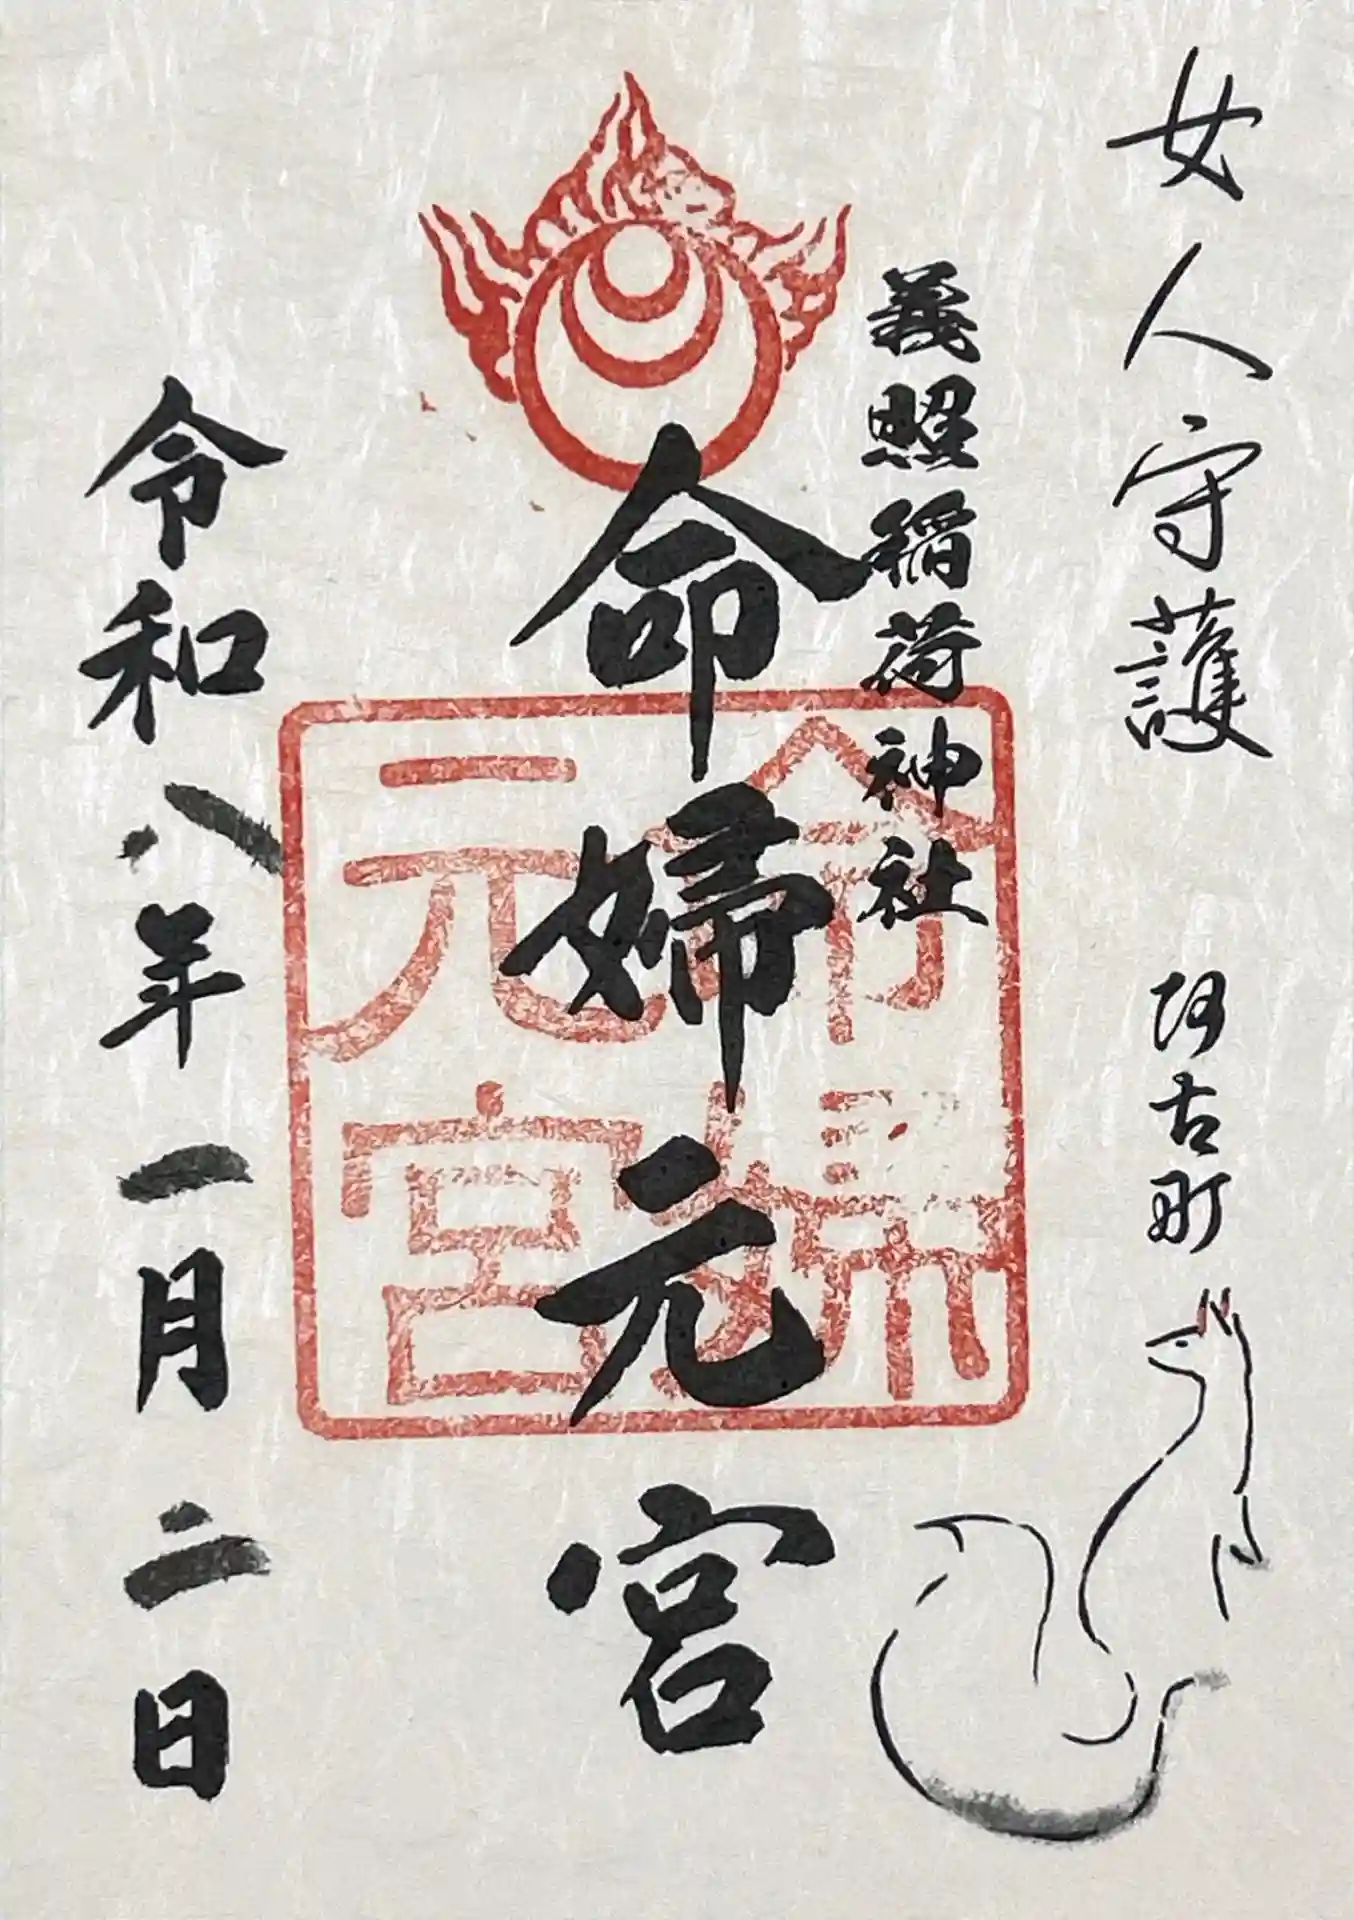 女人守護 阿古町
義照稲荷神社
命婦元宮
命婦元宮
令和八年一月二日